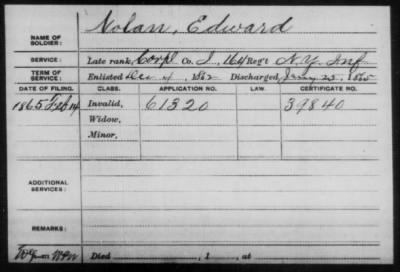 Nolan, Edward
NAME OF SOLDIER:
SERVICE: Late rank, Corpl Co. I, 164 Reg't N.Y. Inf
TERM OF SERVICE: Enlisted Dec 4, 1862 Discharged 25, 1865
DATE OF FILING. CLASS. APPLICATION NO. LAW. CERTIFICATE NO.
1865 Feb 14 Invalid, 61320 39840
Widow,
Minor,
ADDITIONAL SERVICES:
REMARKS:
Died , 1 , at